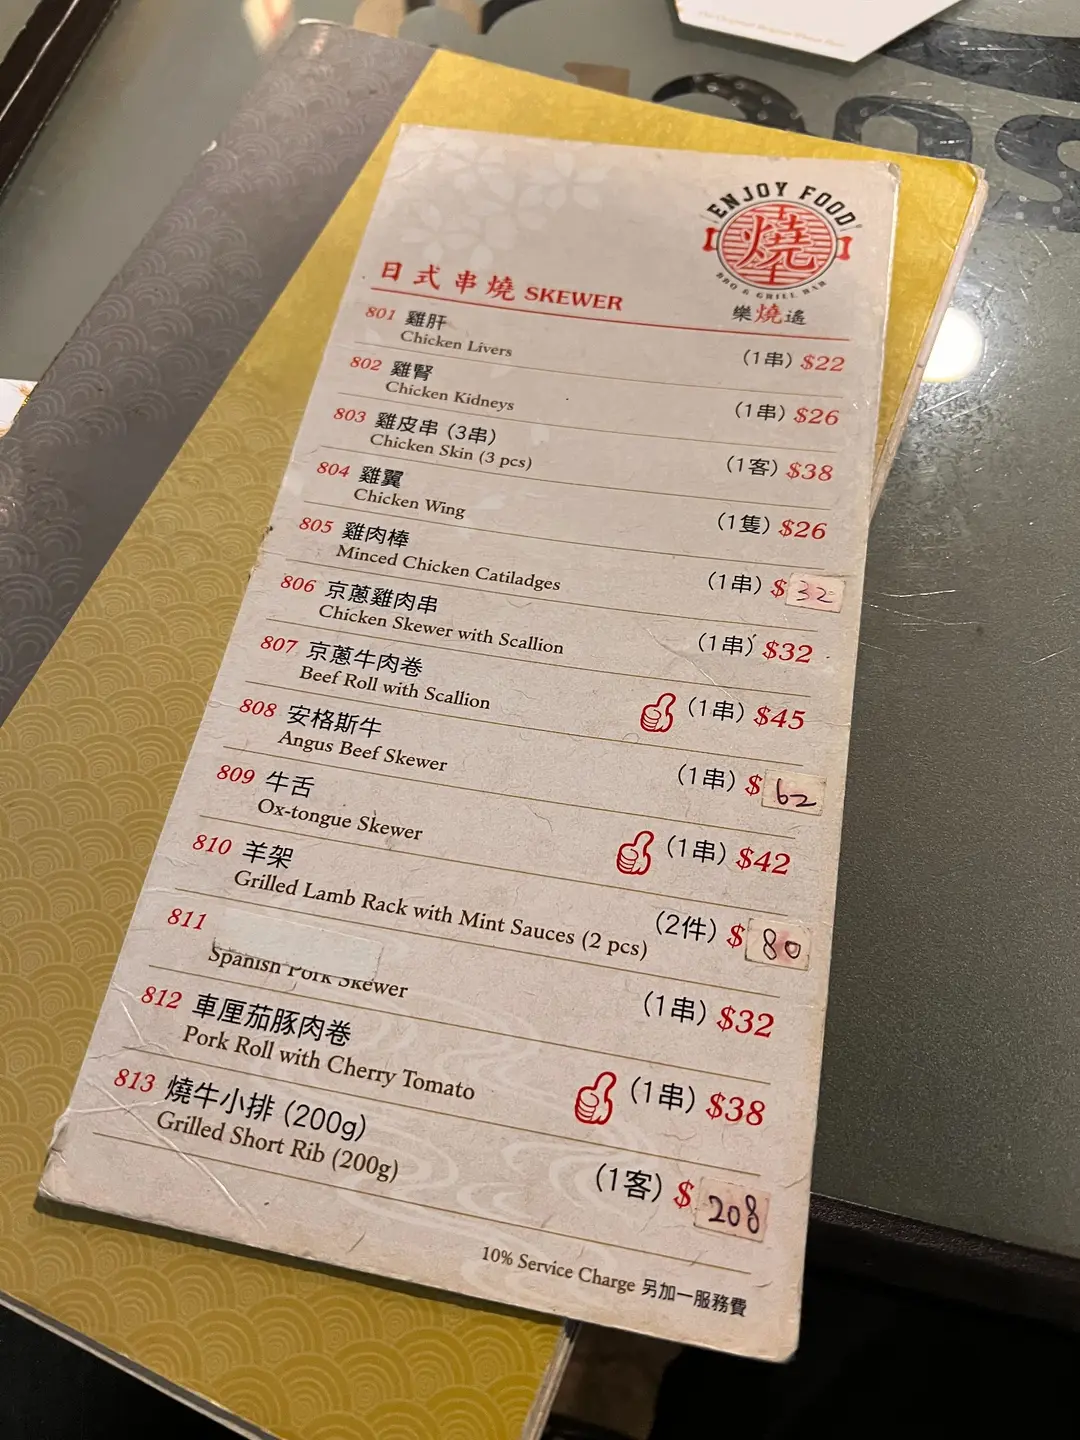 ENJOY FOOD
燒
BBQ & GRILL BAR
樂燒遙
日式串燒 SKEWER
801 雞肝 (1串) $22
Chicken Livers
802 雞腎 (1串) $26
Chicken Kidneys
803 雞皮串 (3串) (1客) $38
Chicken Skin (3 pcs)
804 雞翼 (1隻) $26
Chicken Wing
805 雞肉棒 (1串) $32
Minced Chicken Catiladges
806 京蔥雞肉串 (1串) $32
Chicken Skewer with Scallion
807 京蔥牛肉卷 (1串) $45
Beef Roll with Scallion
808 安格斯牛 (1串) $62
Angus Beef Skewer
809 牛舌 (1串) $42
Ox-tongue Skewer
810 羊架 (2件) $80
Grilled Lamb Rack with Mint Sauces (2 pcs)
811 (1串) $32
Spanish Pork Skewer
812 車厘茄豚肉卷 (1串) $38
Pork Roll with Cherry Tomato
813 燒牛小排 (200g) (1客) $208
Grilled Short Rib (200g)
10% Service Charge 另加一服務費